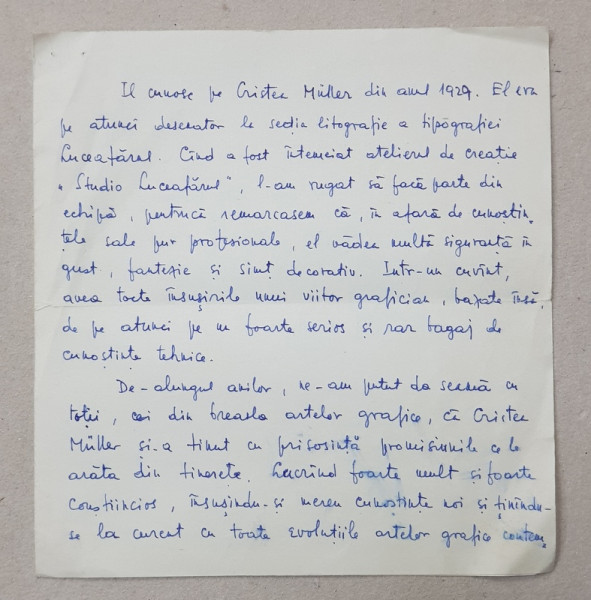 Il cunosc pe Cristea Müller din anul 1929. El era
pe atunci desenator la secția litografie a tipografiei
Luceafărul. Cînd a fost întemeiat atelierul de creație
"Studio Luceafărul", l-am rugat să facă parte din
echipă, pentrucă remarcasem că, în afară de cunoștin-
țele sale pur profesionale, el vădea multă siguranță în
gust, fantezie și simț decorativ. Intr-un cuvînt,
avea toate însușirile unui viitor grafician, bazate însă,
de pe atunci pe un foarte serios și rar bagaj de
cunoștințe tehnice.
De-alungul anilor, ne-am putut da seamă cu
toții, cei din breasla artelor grafice, că Cristea
Müller și-a ținut cu prisosință promisiunile ce le
arăta din tinerețe. Lucrînd foarte mult și foarte
conștiincios, însușindu-și mereu cunoștințe noi și ținîndu-
se la curent cu toate evoluțiile artelor grafice contem-